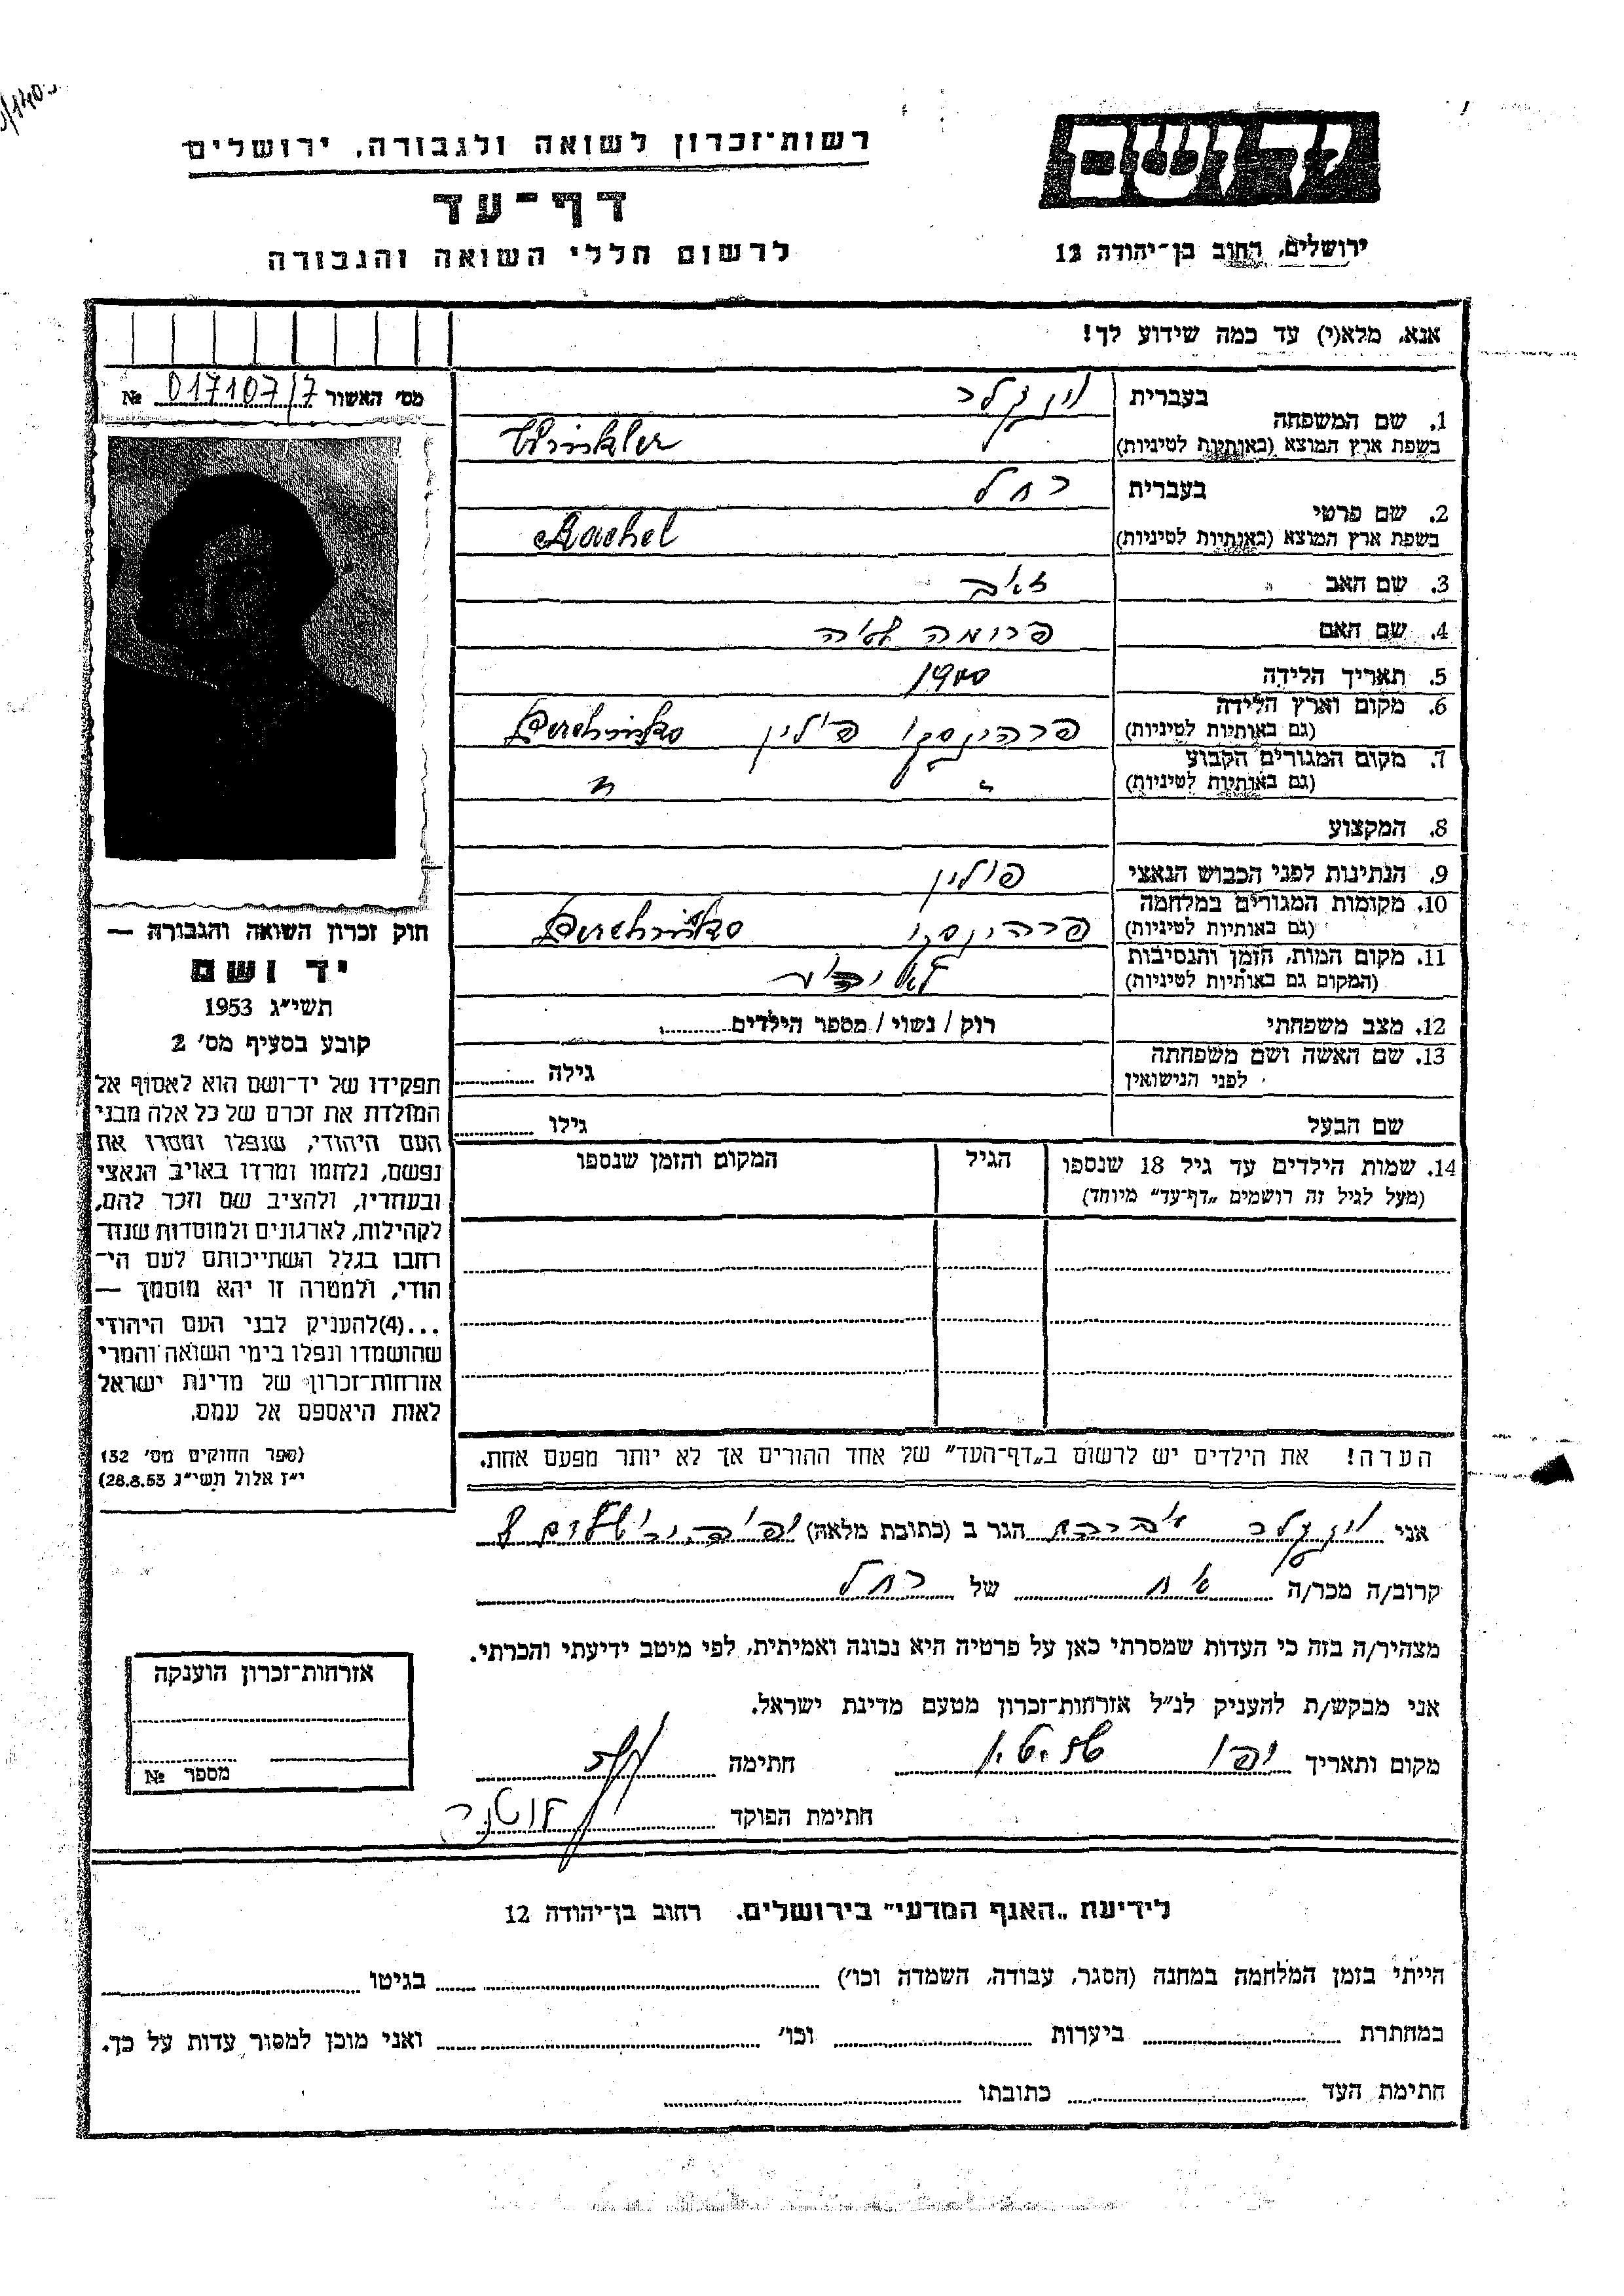 רשות־זכרון לשואה ולגבורה, ירושלים
דף־עד
לרשום חללי השואה והגבורה
יד ושם
ירושלים, רחוב בן־יהודה 12
אנא, מלא(י) עד כמה שידוע לך!
מס׳ האשור 017107/7 №
1. שם המשפחה
בעברית וינקלר
בשפת ארץ המוצא (באותיות לטיניות) Winkler
2. שם פרטי
בעברית רחל
בשפת ארץ המוצא (באותיות לטיניות) Rachel
3. שם האב זאב
4. שם האם פרומה
5. תאריך הלידה 1900
6. מקום וארץ הלידה
(גם באותיות לטיניות) פרהינסקו פולין Perehinsko
7. מקום המגורים הקבוע
(גם באותיות לטיניות) " "
8. המקצוע
9. הנתינות לפני הכבוש הנאצי פולין
10. מקומות המגורים במלחמה
(גם באותיות לטיניות) פרהינסקו Perehinsko
11. מקום המות, הזמן והנסיבות
(המקום גם באותיות לטיניות)
12. מצב משפחתי רוק / נשוי / מספר הילדים
13. שם האשה ושם משפחתה
לפני הנישואין גילה
שם הבעל גילו
14. שמות הילדים עד גיל 18 שנספו הגיל המקום והזמן שנספו
(מעל לגיל זה רושמים „דף־עד” מיוחד)
חוק זכרון השואה והגבורה —
יד ושם
תשי״ג 1953
קובע בסעיף מס׳ 2
תפקידו של יד־ושם הוא לאסוף אל
המולדת את זכרם של כל אלה מבני
העם היהודי, שנפלו ומסרו את
נפשם, נלחמו ומרדו באויב הנאצי
ובעוזריו, ולהציב שם וזכר להם,
לקהילות, לארגונים ולמוסדות שנח־
רחבו בגלל השתייכותם לעם הי־
הודי, ולמטרה זו יהא מוסמך —
...(4)להעניק לבני העם היהודי
שהושמדו ונפלו בימי השואה והמרי
אזרחות־זכרון של מדינת ישראל
לאות היאספם אל עמם.
(ספר החוקים מס׳ 132
י״ז אלול תשי״ג 28.8.53)
הערה! את הילדים יש לרשום ב„דף־העד” של אחד ההורים אך לא יותר מפעם אחת.
אני וינקלר הגר ב (כתובת מלאה)
קרוב/ה מכר/ה אח של רחל
מצהיר/ה בזה כי העדות שמסרתי כאן על פרטיה היא נכונה ואמיתית, לפי מיטב ידיעתי והכרתי.
אני מבקש/ת להעניק לנ״ל אזרחות־זכרון מטעם מדינת ישראל.
מקום ותאריך יפו חתימה
חתימת הפוקד
אזרחות־זכרון הוענקה
מספר №
לידיעת „האגף המדעי” בירושלים. רחוב בן־יהודה 12
הייתי בזמן המלחמה במחנה (הסגר, עבודה, השמדה וכו׳) בגיטו
במחתרת ביערות וכו׳ ואני מוכן למסור עדות על כך.
חתימת העד כתובתו